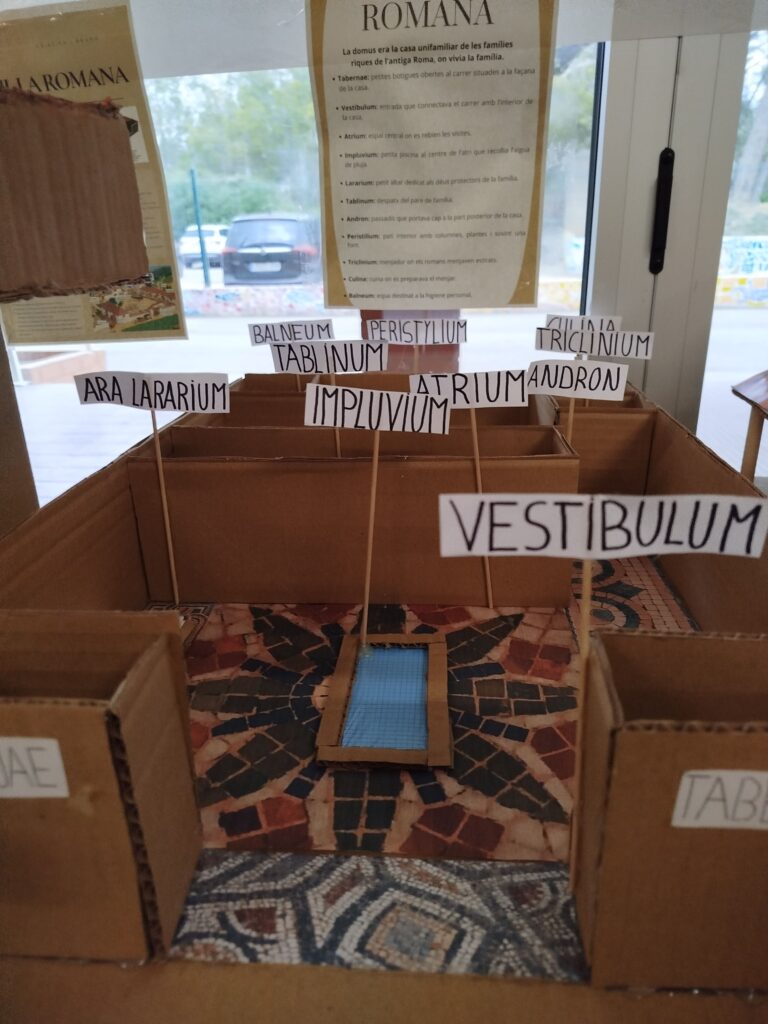 ROMANA
La domus era la casa unifamiliar de les famílies
riques de l'antiga Roma, on vivia la família.
• Tabernae: petites botigues obertes al carrer situades a la façana
de la casa.
• Vestíbulum: entrada que connectava el carrer amb l'interior de
la casa.
• Atrium: espai central on es rebien les visites.
• Impluvium: petita piscina al centre de l'atri que recollia l'aigua
de pluja.
• Lararium: petit altar dedicat als déus protectors de la família.
• Tablinum: despatx del pare de família.
• Andron: passadís que portava cap a la part posterior de la casa.
• Peristilium: pati interior amb columnes, plantes i sovint una
font.
• Triclinium: menjador on els romans menjaven estirats.
• Culina: cuina on es preparava el menjar.
• Balneum: espai destinat a la higiene personal.
ROMANA
BALNEUM
PERISTYLIUM
CULINA
TABLINUM
TRICLINIUM
ARA LARARIUM
IMPLUVIUM
ATRIUM
ANDRON
VESTIBULUM
UAE
TABE